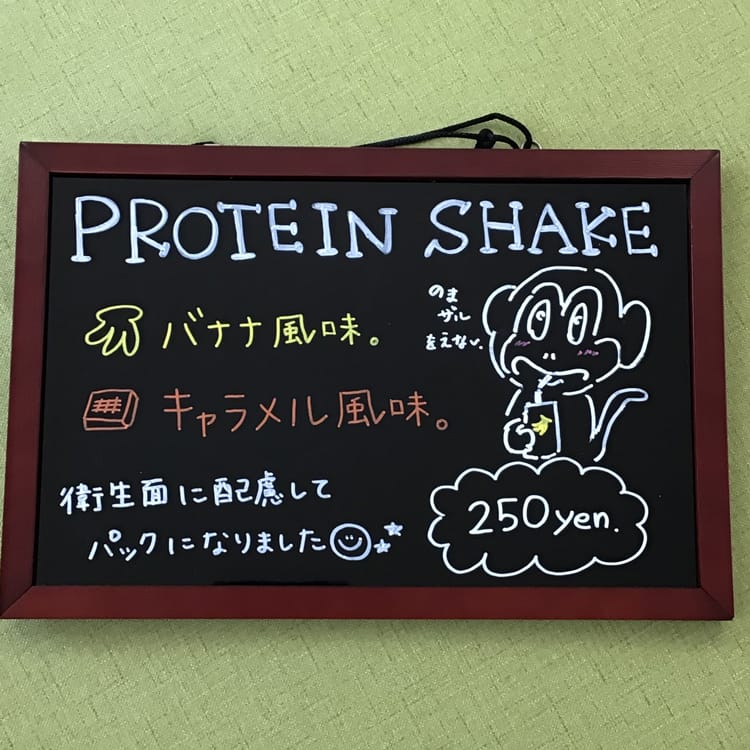 PROTEIN SHAKE
バナナ風味。
キャラメル風味。
のま
ザル
をえない.
衛生面に配慮して
パックになりました
250yen.